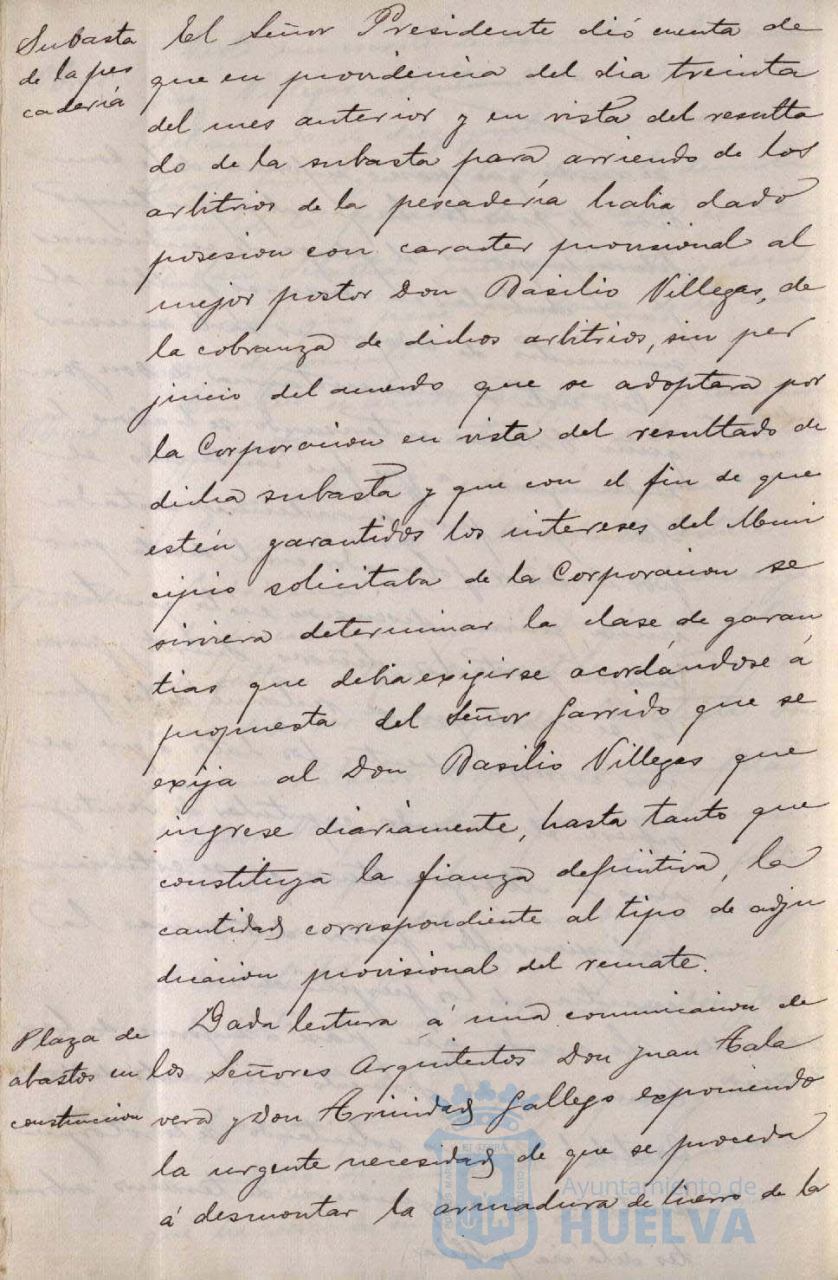 Subasta
de la pes
caderia
El Señor Presidente dió cuenta de
que en providencia del dia treinta
del mes anterior y en vista del resulta
do de la subasta para arriendo de los
arbitrios de la pescadería habia dado
posesion con caracter provisional al
mejor postor Don Basilio Villegas, de
la cobranza de dichos arbitrios, sin per
juicio del acuerdo que se adoptara por
la Corporacion en vista del resultado de
dicha subasta y que con el fin de que
estén garantidos los intereses del Muni
cipio solicitaba de la Corporacion se
sirviera determinar la clase de garan
tias que debia exigirse acordándose á
propuesta del Señor Garrido que se
exija al Don Basilio Villegas que
ingrese diariamente, hasta tanto que
constituya la fianza definitiva, la
cantidad correspondiente al tipo de adju
dicacion provisional del remate.
Plaza de
abastos en
construccion
Dada lectura á una comunicacion de
los Señores Arquitectos Don Juan Tala
vera y Don Trinidad Gallego exponiendo
la urgente necesidad de que se proceda
á desmontar la armadura de hierro de la
Ayuntamiento de
HUELVA